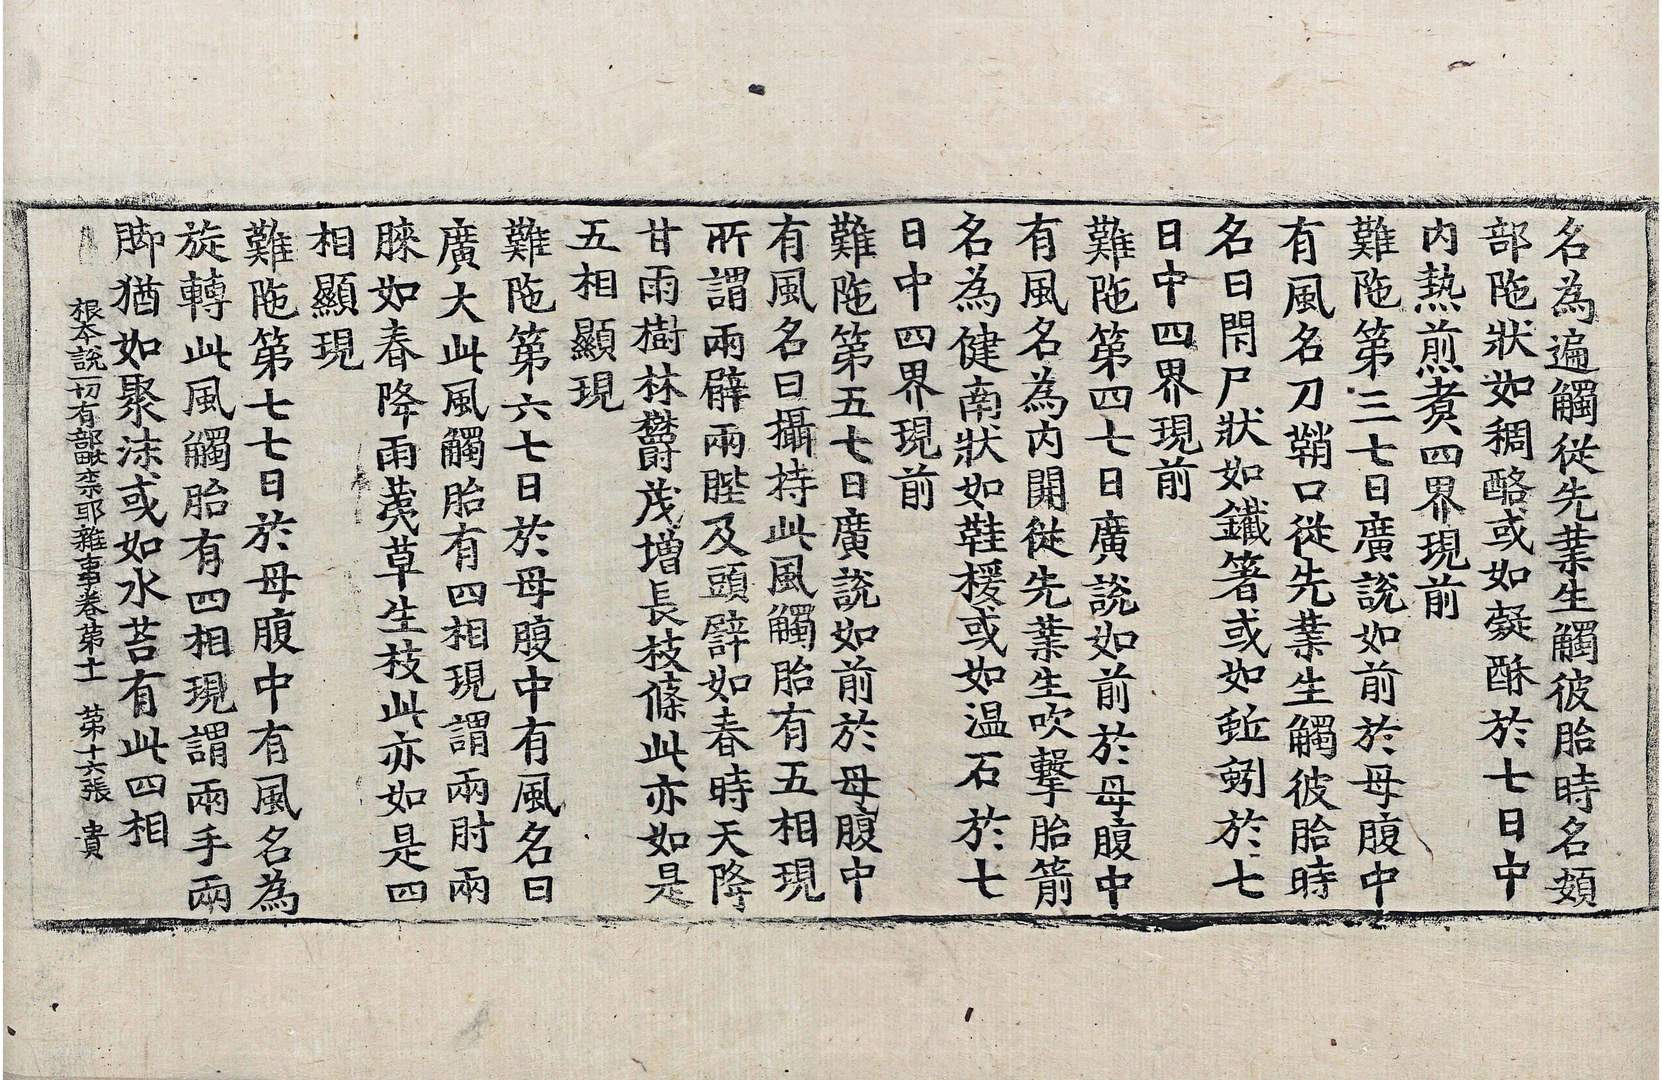 名為遍觸從先業生觸彼胎時名頞
部陁狀如稠酪或如凝酥於七日中
内熱煎煑四界現前
難陁第三七日廣說如前於母腹中
有風名刀鞘口從先業生觸彼胎時
名曰閇尸狀如鐵箸或如蚯蚓於七
日中四界現前
難陁第四七日廣說如前於母腹中
有風名為内開從先業生吹擊胎箭
名為健南狀如鞋楥或如温石於七
日中四界現前
難陁第五七日廣說如前於母腹中
有風名曰攝持此風觸胎有五相現
所謂兩臂兩䏶及頭譬如春時天降
甘雨樹林欝茂增長枝條此亦如是
五相顯現
難陁第六七日於母腹中有風名曰
廣大此風觸胎有四相現謂兩肘兩
膝如春降雨荑草生枝此亦如是四
相顯現
難陁第七七日於母腹中有風名為
旋轉此風觸胎有四相現謂兩手兩
脚猶如聚沫或如水苔有此四相
根本說一切有部毗柰耶雜事卷第十一 第十六張 貴